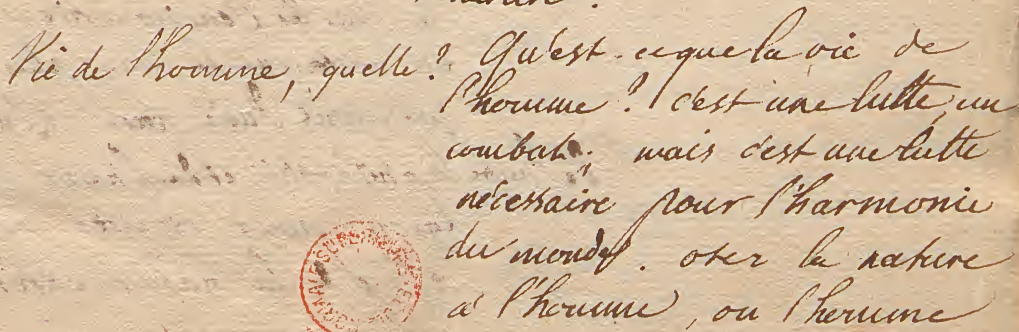 Vie de l'homme, quelle ?
Qu'est-ce que la vie de
l'homme ? c'est une lutte, un
combat ; mais c'est une lutte
nécessaire pour l'harmonie
du monde. oter la nature
à l'homme, ou l'homme